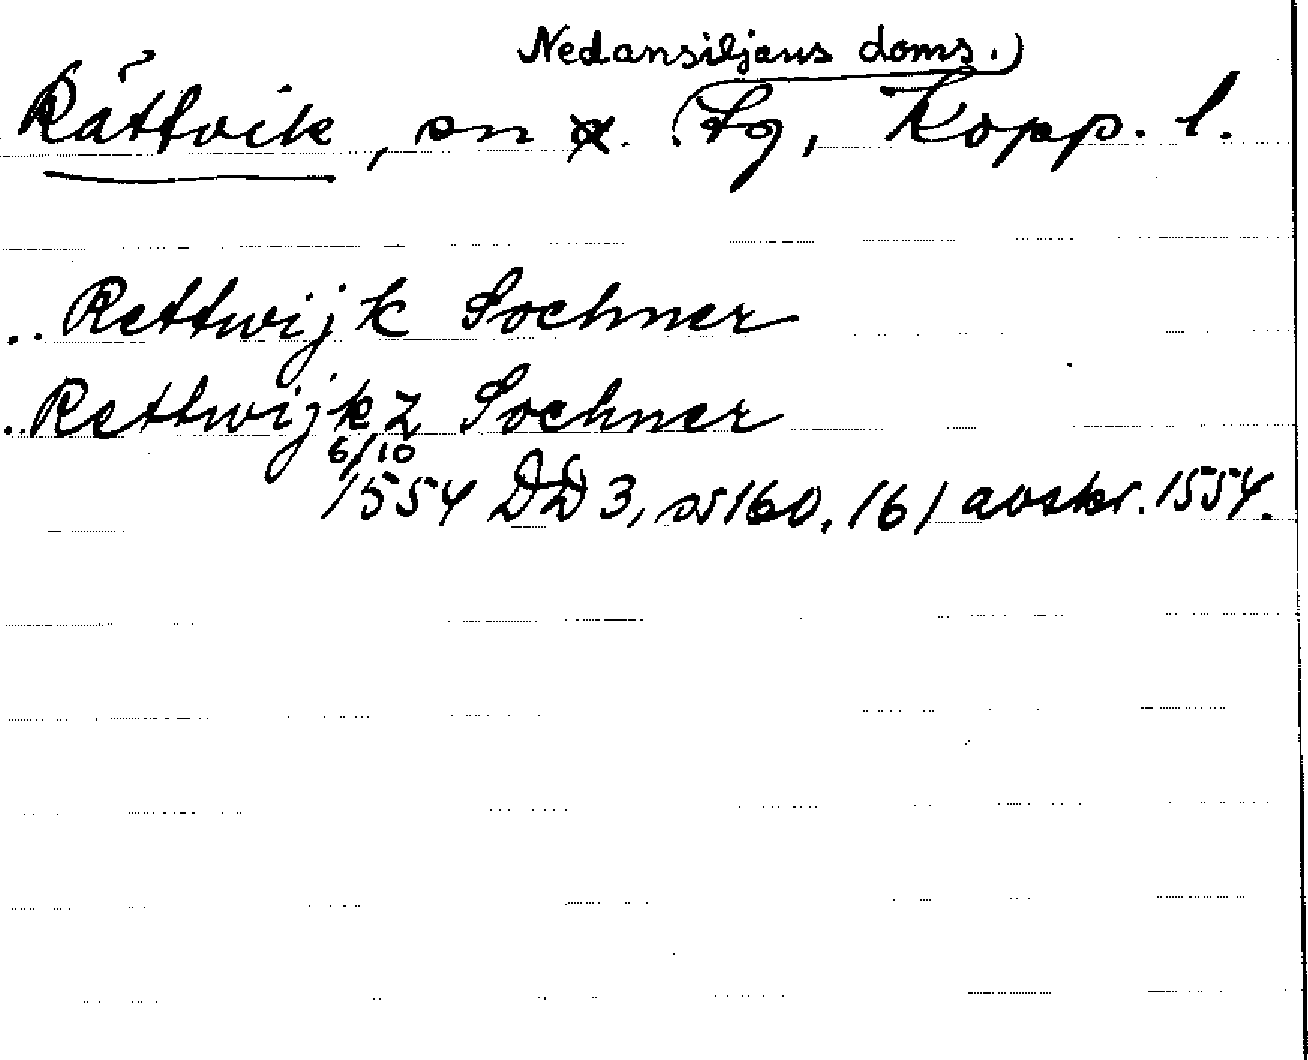 Nedansiljans doms.)
Rättvik, sn x. (Tg, Kopp. l.
.. Rettwijk Sochner
.. Rettwijkz Sochner
6/10
1554 DD 3, s 160, 161 avskr. 1554.